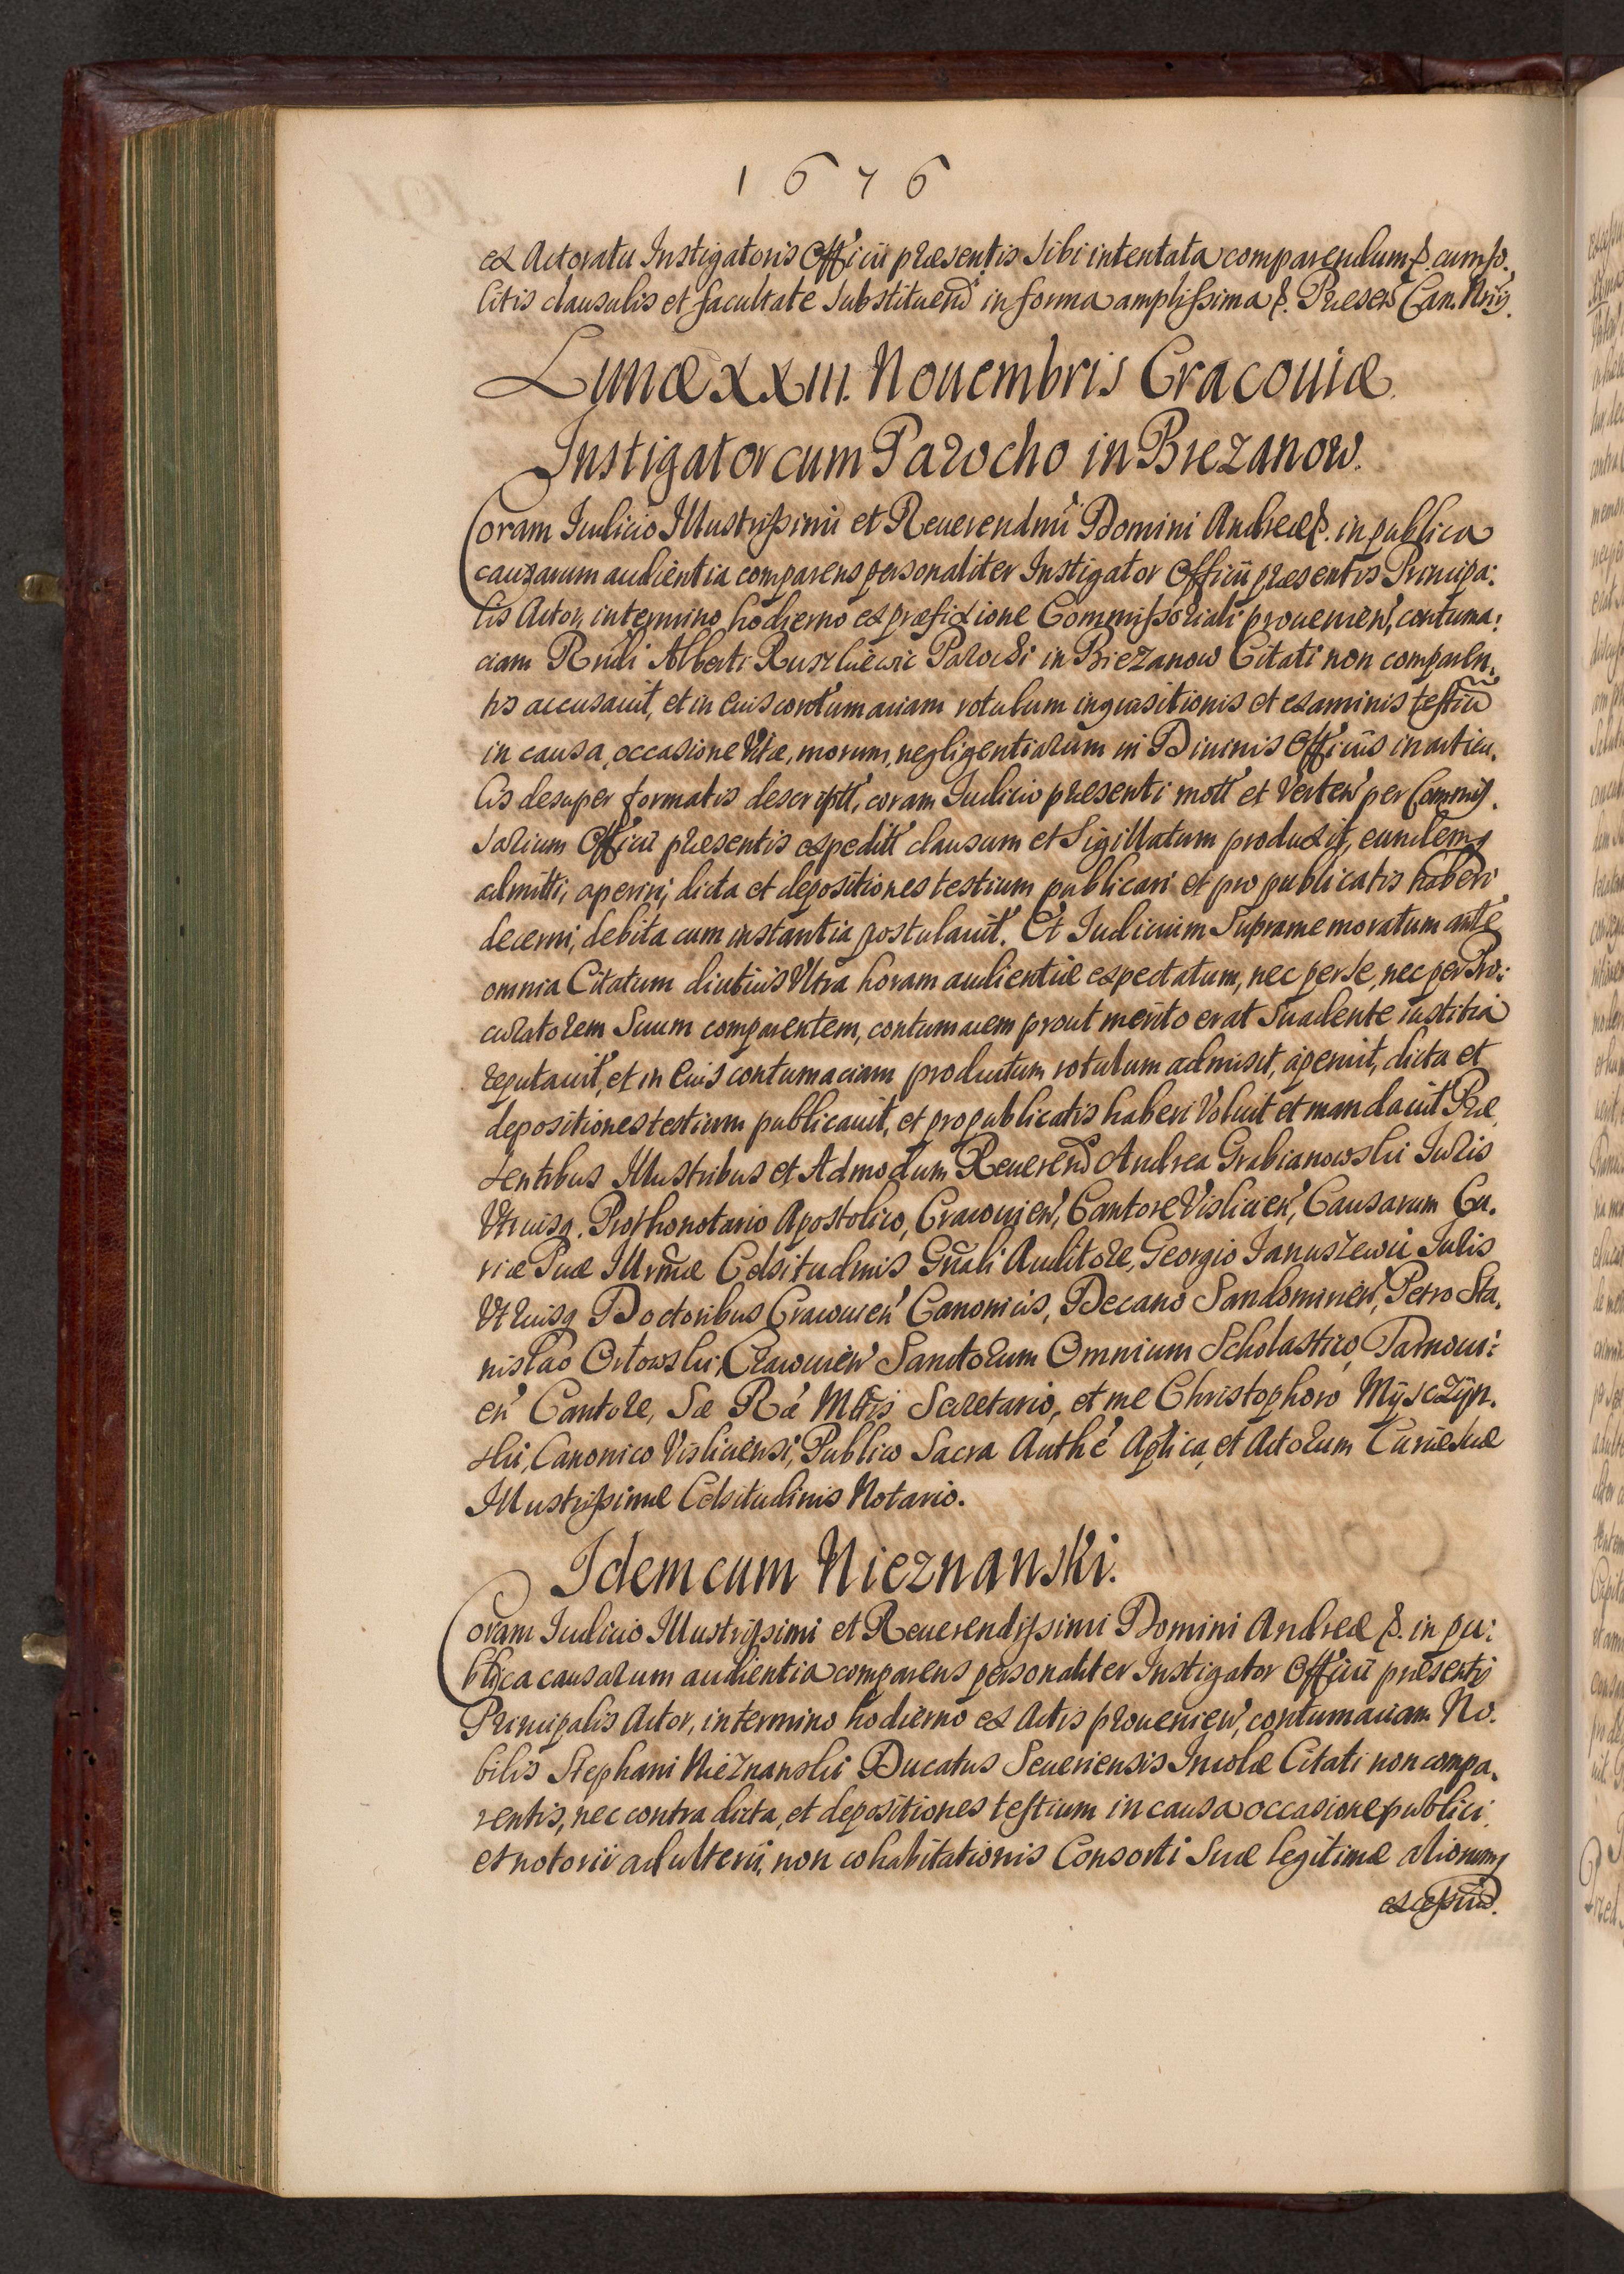 1676
ex Actoratu Instigatoris Officii præsentis Sibi intentata comparendum &. cum so.
litis clausulis et facultate Substituend' in forma amplissima &. Præsen' Can. Nrijs.
Lunæ XXIII. Nouembris Cracouiæ.
Instigator cum Parocho in Biezanow.
Coram Iudicio Illustrissimi et Reuerendmi Domini Andreæ &. in publica
causarum audientia comparens personaliter Instigator Officii præsentis Principa:
lis Actor, in termino hodierno ex præfixione Commissoriali prouenien', contuma:
ciam Rndi Alberti Parochi in Biezanow Citati non comparen.
tis accusauit, et in euis contumaciam rotulum inquisitionis et examinis testiu
in causa, occasione Vitæ, morum, negligentiarum in Diuinis Officiis in articu.
lis desuper formatis descriptt', coram Iudicio præsenti mott' et Verten' per Commis.
sarium Officii præsentis expeditt' clausum et Sigillatum produxit, eundemq
admitti, aperiri, dicta et depositiones testium publicari et pro publicatis haberi
decerni, debita cum instantia postulauit. Et Iudicium Supramemoratum ante
omnia Citatum diutius Vltra horam audientiæ expectatum, nec per se, nec per Pro:
curatorem Suum comparentem, contumacem prout merito erat Suadente iustitia
reputauit, et in Euis contumaciam productum rotulum admisit, aperuit, dicta et
depositiones testium publicauit, et pro publicatis haberi Voluit et mandauit Præ
sentibus Illustribus et Admodum Reuerend' Andrea Grabianowski Iuris
Vtriusq. Prothonotario Apostolico, Cracouien', Cantore Vislicien', Causarum Cu.
riæ Suæ Illrmæ Celsitudinis Gnali Auditore, Georgio Ianuszewic Iuris
Vtriusq Doctoribus Cracouien' Canonicis, Decano Sandomirien', Petro Sta.
nislao Orlowski, Cracouien' Sanctorum Omnium Scholastico, Tarnoui:
en' Cantore, Sæ Ræ Mttis Secretario, et me Christophoro Mysczyn.
ski, Canonico Visliciensi, Publico Sacra Authe' Aplica, et Actorum Curiæ Suæ
Illustrissimæ Celsitudinis Notario.
Idem cum Nieznanski.
Coram Iudicio Illustrissimi et Reuerendissimi Domini Andreæ &. in pu:
blica causarum audientia comparens personaliter Instigator Officii præsentis
Principalis Actor, in termino hodierno ex Actis prouenien', contumaciam No.
bilis Stephani Nieznanski Ducatus Seueriensis Incolæ Citati non compa.
rentis, nec contra dicta, et depositiones testium in causa occasione publici
et notorii adulterii, non cohabitationis Consorti Suæ legitimæ aliorumq
excessuu.